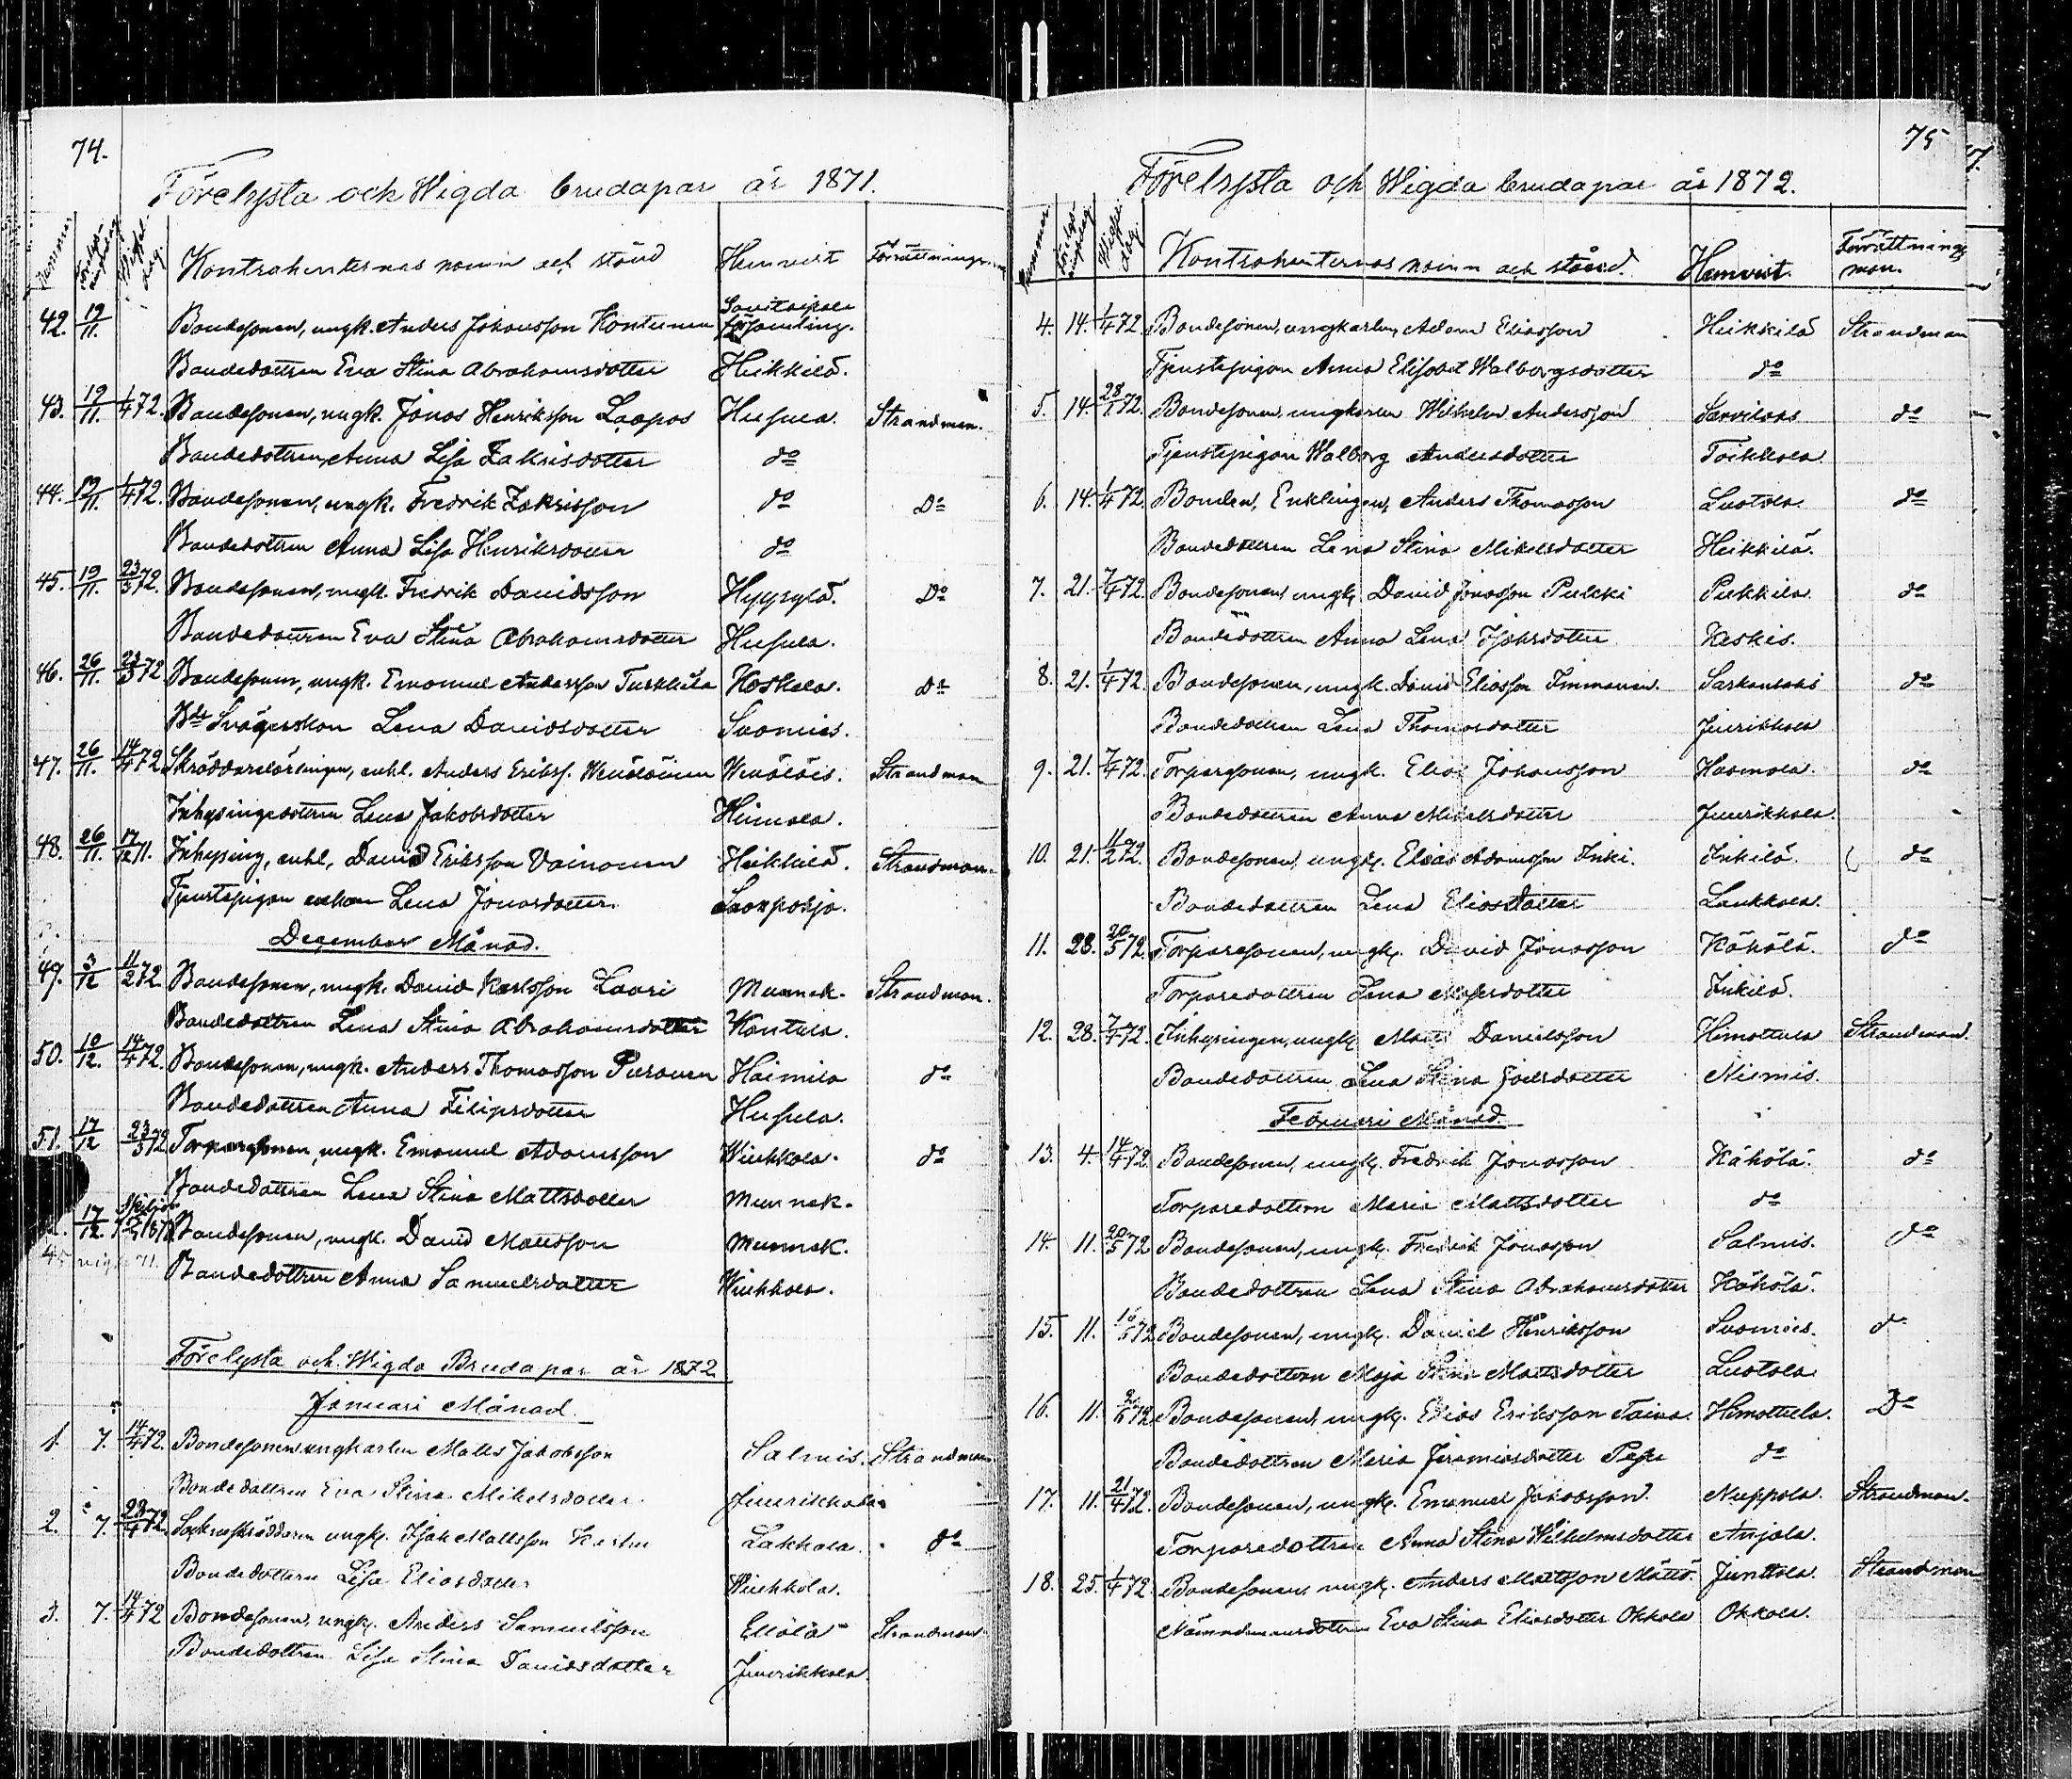 74.
Förelysta och Wigda brudapar år 1871.
Nummer Förelysningsdag Wigsel dag. Kontrahenternas namn och stånd Hemvist Förrättnings
42. 19/11. Bondesonen, ungk. Anders Johansson Kontunen Savitaipale församling.
Bondedottren Eva Stina Abrahamsdotter Heikkilä.
43. 19/11. 1/4 72. Bondesonen, ungk. Jonas Henriksson Laapas Husula. Strandman.
Bondedottren, Anna Lisa Zakrisdotter do
44. 19/11. 1/4 72. Bondesonen, ungk. Fredrik Zakrisson do Do
Bondedottren Anna Lisa Henriksdotter do
45. 19/11. 23/3 72. Bondesonen, ungk. Fredrik Davidsson Hyyrylä. Do
Bondedottren Eva Stina Abrahamsdotter Husula.
46. 26/11. 23/3 72 Bondesonen, ungk. Emanuel Andersson Turkkila Koskela. Do
Bde Svägerskan Lena Davidsdotter Suomies.
47. 26/11. 14/4 72 Skräddarelärlingen, enkl. Anders Erikss. Wenäläinen Wenäläis. Strandman
Inhysingedottren Lena Jakobsdotter Heimala.
48. 26/11. 17/12 71. Inhysing, enkl, David Eriksson Vainonen Heikkilä. Strandman.
Tjenstepigan enkan Lena Jonasdotter.
December Månad.
49. 3/12 11/2 72. Bondesonen, ungk. David Karlsson Laari Munnek. Strandman.
Bondedottren Lena Stina Abrahamsdotter Kontula.
50. 10/12. 14/4 72. Bondesonen, ungk. Anders Thomasson Haimila do
Bondedottren Anna Filipsdotter Husula.
51. 17/12 23/3 72 Torparesonen, ungk. Emanuel Adamsson Wiukkola. do
Bondedottren Lena Stina Mattsdotter Munnek.
17/12. Bondesonen, ungk. David Mattsson Munnek.
Bondedottren Anna Samuelsdotter Wiukkola.
Förelysta och Wigda Brudapar år 1872
Januari Månad.
1. 7. 14/4 72. Bondesonen ungkarlen Matts Jakobsson Salmis. Strandman
Bondedottren Eva Stina Mikelsdotter Junrikkala
2. 7. 28/4 72. Sockneskräddaren ungk. Isak Mattsson Lakkala. do
Bondedottren Lisa Eliasdotter Wiukkola.
3. 7. 14/4 72 Bondesonen, ungk. Anders Samuelsson Ellölä Strandman.
Bondedottren Lisa Stina Davidsdotter Junrikkala.
75
Förelysta och Wigda brudapar år 1872.
Nummer Förelysningsdag Wigsel dag. Kontrahenternas namn och stånd. Hemvist. Förrättnings man.
4. 14. 1/4 72. Bondesonen, ungkarlen Adam Eliasson Heikkilä Strandman
Tjenstepigan Anna Elisabet Walborgsdotter do
5. 14. 28/1 72. Bondesonen, ungkarlen Wilhelm Andersson do
Tjenstepigan Walborg Andersdotter Toikkala.
6. 14. 1/4 72. Bonden, Enklingen, Anders Thomasson Luotola. do
Bondedottren Lena Stina Mikelsdotter Heikkilä.
7. 21. 7/4 72. Bondesonen ungk. David Jonasson Pulkki Pukkila. do
Bondedottren Anna Lena Isaksdotter Keskis.
8. 21. 1/4 72. Bondesonen, ungk. David Eliasson Immonen. do
Bondedottren Lena Thomasdotter Junrikkala
9. 21. 7/4 72. Torparesonen, ungk. Elias Johansson Haemala. do
Bondedottren Anna Mikelsdotter Junrikkala.
10. 21. 11/2 72. Bondesonen, ungk. Elias Adamsson Inki. Inkilä. do
Bondedottren Lena Eliasdotter Laukkala.
11. 28. 20/5 72. Torparesonen, ungk. David Jonasson Kähölä. do
Torparedottren Lena Inkilä.
12. 28. 7/4 72. Inhysingen, ungk. Matts Danielsson Himottula Strandman.
Bondedottren Lena Stina Joelsdotter Niemis.
Februari Månad.
13. 4. 14/4 72. Bondesonen, ungk. Fredrik Jonasson Kähölä. do
Torparedottren Maria Mattsdotter do
14. 11. 20/5 72 Bondesonen, ungk. Fredrik Jonasson Salmis. do
Bondedottren Lena Stina Abrahamsdotter Kähölä.
15. 11. 72 Bondesonen, ungk. Daniel Henriksson Suomies. do
Bondedottren Maja Stina Mattsdotter Luotola
16. 11. 72 Bondesonen, ungk. Elias Eriksson Taina. Himottula. Do
Bondedottren Maria Jeremiasdotter do
17. 11. 21/4 72. Bondesonen, ungk. Emanuel Jakobsson. Nuppola. Strandman.
Torparedottren Anna Stina Wilhelmsdotter Anjala.
18. 25. 1/4 72. Bondesonen, ungk. Anders Mattsson Mättö. Junttola. Strandman
Nämndemansdottren Eva Stina Eliasdotter Okkola Okkola.